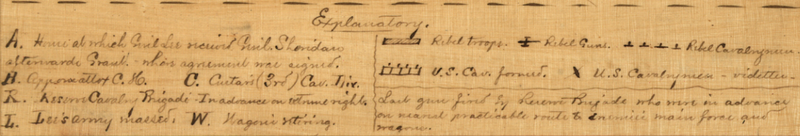 Explanatory.
A. House at which Gen'l Lee received Gen'l Sheridan
afterwards Grant. where agreement was signed.
H. Appomattox C.H. C. Custard (3rd) Cav. Div.
R. Reserve Cavalry Brigade. In advance on extreme right.
L. Lee's army massed. W. Wagons retiring.
Rebel troops. Rebel Guns. Rebel Cavalrymen
U.S. Cav. formed. U.S. Cavalrymen - videttes
Last gun fired by Reserve Brigade who were in advance
on nearest practicable route to enemies main force and
wagons.